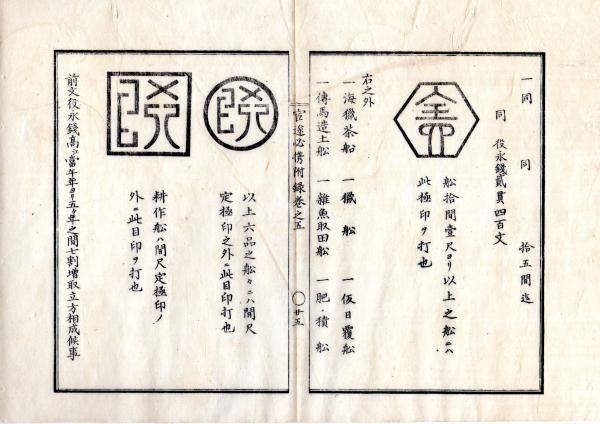 一同　同　拾五間迄
同　役永錢貳貫四百文
舩拾間壹尺ヨリ以上之舩ニハ
此極印ヲ打也
右之外
一海獵茶船　一獵舩　一仮日覆舩
一傳馬造土舩　一雑魚取田舩　一肥積舩
官途必携附録巻之五　〇廿五
以上六品之舩々ニハ間尺
定極印之外ニ此目印打也
耕作舩ハ間尺定極印ノ
外ニ此目印ヲ打也
前文役永錢高ヲ當午年ヨリ五ケ年之間七割増取立方相成候事